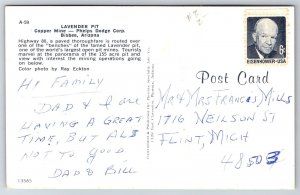 A-59
LAVENDER PIT
Copper Mine — Phelps Dodge Corp.
Bisbee, Arizona
Highway 80, a paved thoroughfare is routed over
one of the "benches" of the famed Lavender pit,
one of the world's largest open pit mines. Tourists
marvel at the immensity of the 155 acre pit and
view with interest the mining operations going on
below.
Color photo by Ray Eckton
HI FAMILY
DAD & I are
HAVING A GREAT
TIME, BUT ALS
NOT TO GOOD
DAD & BILL
13585
6¢
EISENHOWER·USA
Post Card
Mr & Mrs FRANCIS MILLS
1716 NEILSON ST
FLINT, MICH
48503